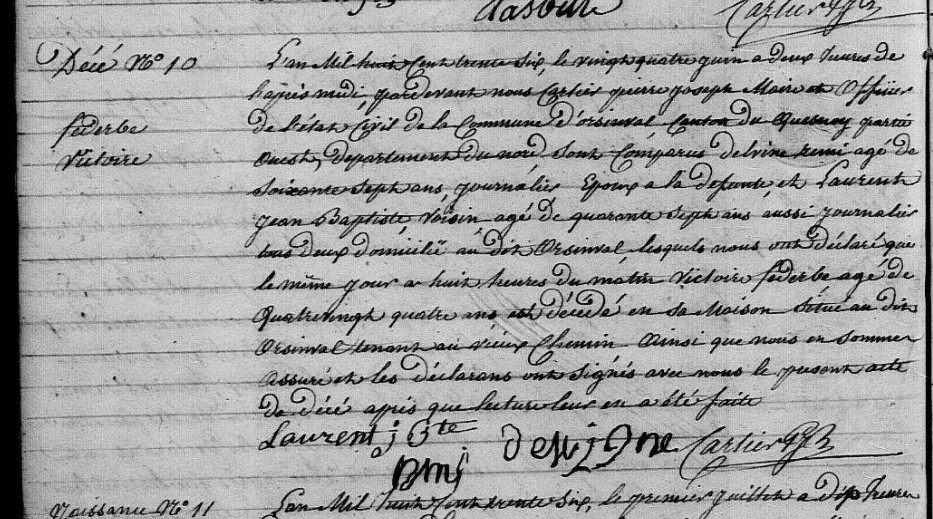 Cartier P J
Décé N° 10
federbe
Victoire
L'an Mil huit Cent trente Six, le vingt quatre juin a deux heures de
l'après midi, pardevant nous Cartier pierre joseph Maire et Officier
de l'état Civil de la Commune d'orsinval Canton du Quesnoy partie
Ouest, Département du nord Sont Comparus delvine remi agé de
Soixante Sept ans, journalier Epoux a la defunte, et Laurent
jean Baptiste voisin agé de quarante Sept ans aussi journalier
tous deux domicilié au dit Orsinval lesquels nous ont déclaré que
le même jour a huit heures du matin Victoire federbe agé de
Quatrevingt quatre ans est décédé en sa Maison Situé au dit
Orsinval tenant au vieux Chemin Ainsi que nous en sommes
assuré et les déclarans ont signés avec nous le present acte
de décé après que lecture leur en a été faite
Laurent j Bte
Cartier P J
Naissance N° 11
L'an Mil huit Cent trente Six, le premier juillet a dix heures